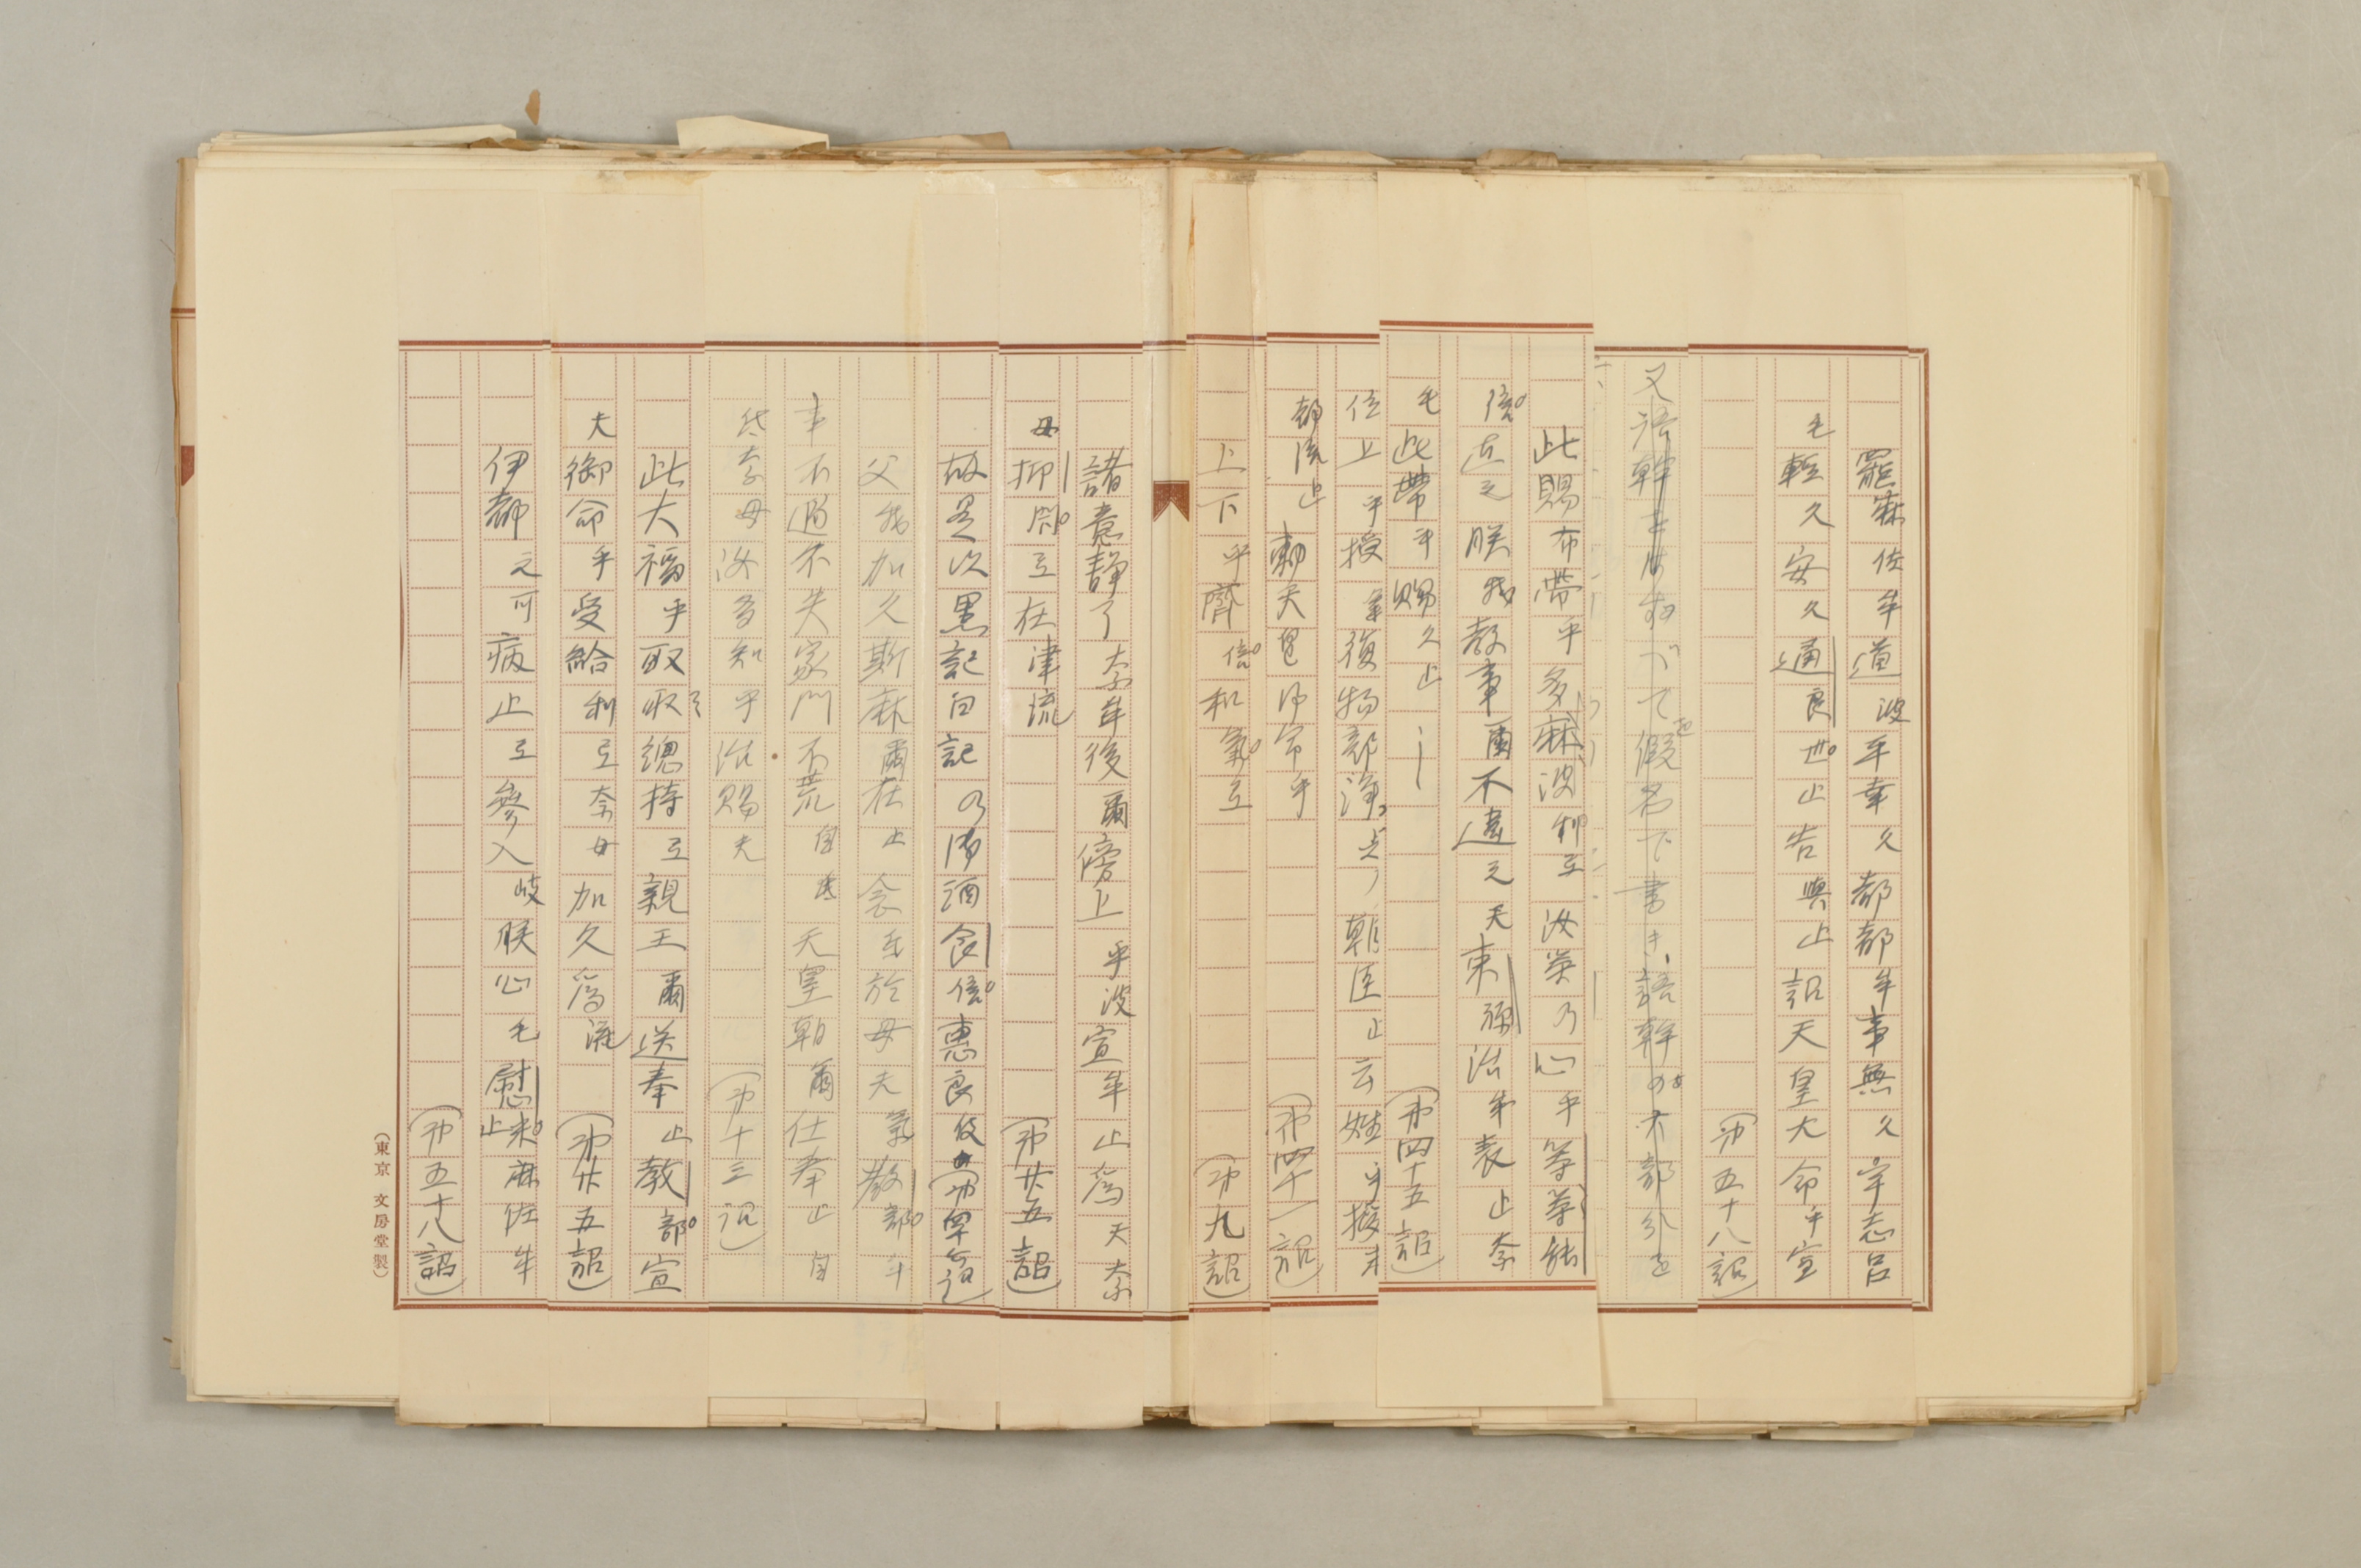 罷麻佐牟道波平幸久都都牟事無久宇志呂
毛輕久安久通良世止告與止詔天皇大命乎宣
(第五十八詔)
又語幹をはなれて假名で書き、語幹の大部分を
此賜布帶乎多麻波利弖汝等乃心乎等等能
倍直之朕我教事爾不違之天束祢治牟表止奈
毛此帶乎賜久止――
(第四十五詔)
位上乎授復物部淨之乃朝臣止云姓乎授末
都流止勅天皇御命乎
(第四十一詔)
上下乎齊倍和氣弖
(第九詔)
諸意靜了奈牟後爾傍上乎波宣牟止爲天奈
母抑閇弖在津流
(第廿五詔)
故是以黒記白記乃御酒食倍惠良伎
父我加久斯麻爾在止念弖於母夫氣教部牟
事不過不失家門不荒自弖天皇朝爾仕奉止自
弖奈母汝多知乎治賜夫
(第十三詔)
此大福乎取收弖總持弖親王爾送奉止教部宣
夫御命乎受給利弖奈母加久爲流
(第廿五詔)
伊都之可病止弖參入岐朕心毛慰米麻佐牟
止
(第五十八詔)
(東京 文房堂製)